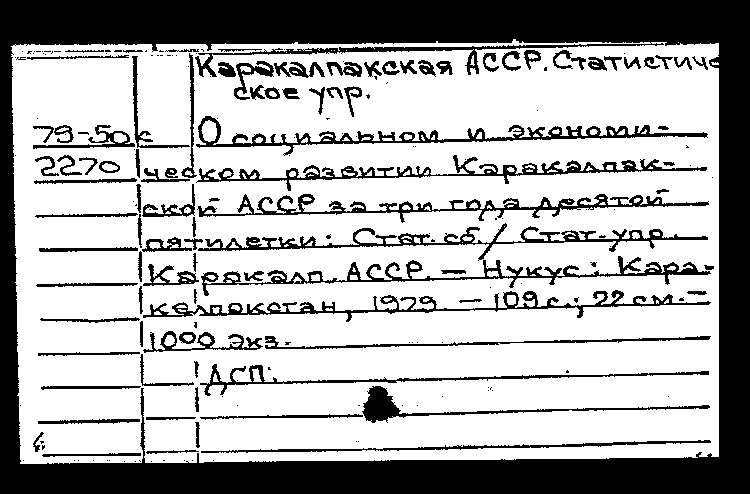 Каракалпакская АССР. Статистиче
ское упр.
79-50к О социальном и экономи-
2270 ческом развитии Каракалпак-
ской АССР за три года десятой
пятилетки: Стат. сб. / Стат. упр.
Каракалп. АССР. — Нукус: Кара-
калпакстан, 1979 — 109 с.; 22 см. —
1000 экз.
ДСП.